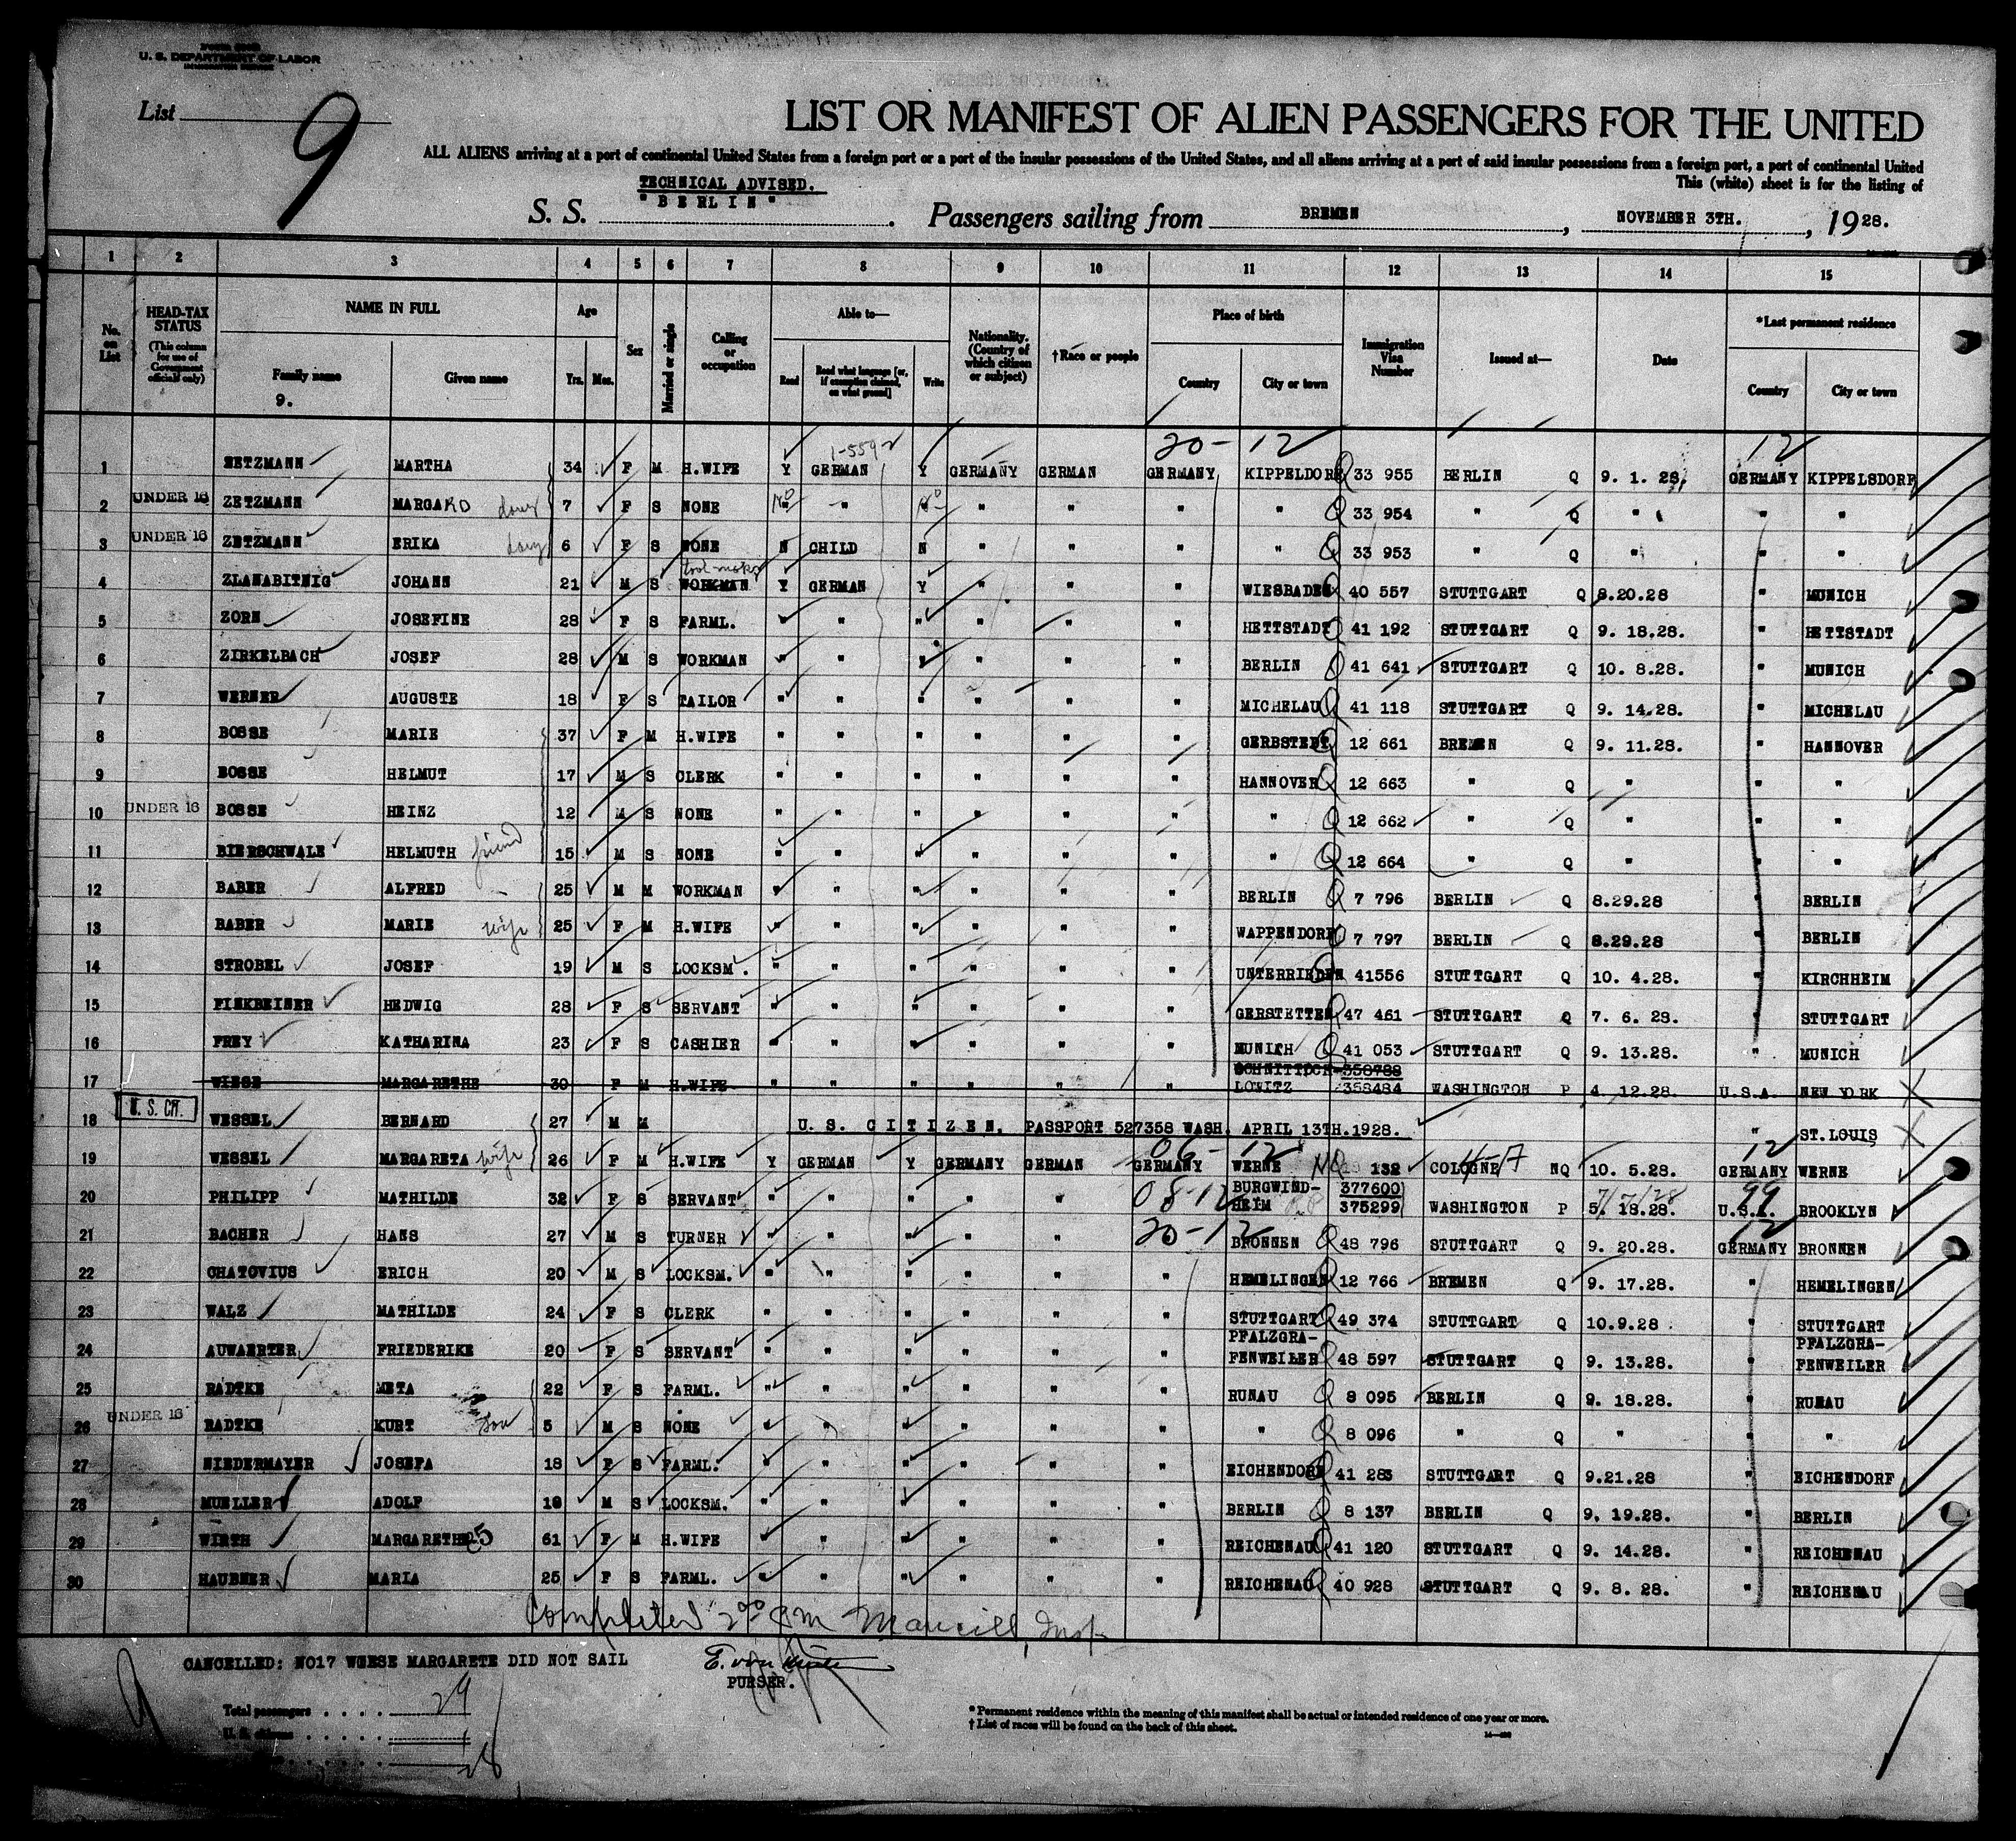 U. S. DEPARTMENT OF LABOR
List 9
LIST OR MANIFEST OF ALIEN PASSENGERS FOR THE UNITED
ALL ALIENS arriving at a port of continental United States from a foreign port or a port of the insular possessions of the United States, and all aliens arriving at a port of said insular possessions from a foreign port, a port of continental United
This (white) sheet is for the listing of
TECHNICAL ADVISED.
S. S. "BERLIN". Passengers sailing from BREMEN, NOVEMBER 3TH., 1928.
1 2 3 4 5 6 7 8 9 10 11 12 13 14 15
No. on List
HEAD-TAX STATUS (This column for use of Government officials only)
NAME IN FULL Family name Given name
9.
Age Yrs. Mos.
Sex
Married or single
Calling or occupation
Able to— Read Read what language [or, if exemption claimed, on what ground] Write
Nationality. (Country of which citizen or subject)
†Race or people
Place of birth Country City or town
Immigration Visa Number
Issued at—
Date
*Last permanent residence Country City or town
1-559 20-12 12
1 ZETZMANN MARTHA 34 F M H.WIFE Y GERMAN Y GERMANY GERMAN GERMANY KIPPELDORF Q 33 955 BERLIN Q 9. 1. 28. GERMANY KIPPELSDORF
2 UNDER 16 ZETZMANN MARGARD daug 7 F S NONE No " No " " " " Q 33 954 " Q " " "
3 UNDER 16 ZETZMANN ERIKA daug 6 F S NONE N CHILD N " " " " Q 33 953 " Q " " "
tool-maker
4 ZLANABITNIG JOHANN 21 M S WORKMAN Y GERMAN Y " " " WIESBADEN Q 40 557 STUTTGART Q 8.20.28 " MUNICH
5 ZORN JOSEFINE 28 F S FARML. " " " " " " HETTSTADT Q 41 192 STUTTGART Q 9. 18.28. " HETTSTADT
6 ZIRKELBACH JOSEF 28 M S WORKMAN " " " " " " BERLIN Q 41 641 STUTTGART Q 10. 8.28. " MUNICH
7 WERNER AUGUSTE 18 F S TAILOR " " " " " " MICHELAU Q 41 118 STUTTGART Q 9. 14.28. " MICHELAU
8 BOSSE MARIE 37 F M H.WIFE " " " " " " GERBSTEDT Q 12 661 BREMEN Q 9. 11.28. " HANNOVER
9 BOSSE HELMUT 17 M S CLERK " " " " " " HANNOVER Q 12 663 " Q " " "
10 UNDER 16 BOSSE HEINZ 12 M S NONE " " " " " " " Q 12 662 " Q " " "
11 BIERSCHWALE HELMUTH friend 15 M S NONE " " " " " " " Q 12 664 " Q " " "
12 BABER ALFRED 25 M M WORKMAN " " " " " " BERLIN Q 7 796 BERLIN Q 8.29.28 " BERLIN
13 BABER MARIE wife 25 F M H.WIFE " " " " " " WAPPENDORF Q 7 797 BERLIN Q 8.29.28 " BERLIN
14 STROBEL JOSEF 19 M S LOCKSM. " " " " " " UNTERRIEDEN Q 41556 STUTTGART Q 10. 4.28. " KIRCHHEIM
15 FINKBEINER HEDWIG 28 F S SERVANT " " " " " " GERSTETTEN Q 47 461 STUTTGART Q 7. 6. 28. " STUTTGART
16 FREY KATHARINA 23 F S CASHIER " " " " " " MUNICH Q 41 053 STUTTGART Q 9. 13.28. " MUNICH
17 WIESE MARGARETHE 30 F M H.WIFE " " " " " " LOWITZ 358788 358484 WASHINGTON P 4. 12.28. U.S.A. NEW YORK
U. S. CIT.
18 WESSEL BERNARD 27 M M U.S. CITIZEN. PASSPORT 527358 WASH. APRIL 13TH.1928. " ST.LOUIS
06-12 4-A 12
19 WESSEL MARGARETA wife 26 F M H.WIFE Y GERMAN Y GERMANY GERMAN GERMANY WERNE NQ 132 COLOGNE NQ 10. 5.28. GERMANY WERNE
08-12 7/7/28 99
20 PHILIPP MATHILDE 32 F S SERVANT " " " " " BURGWIND-HEIM 377600 375299 WASHINGTON P 5. 18.28. U.S.A. BROOKLYN
20-12 12
21 BACHER HANS 27 M S TURNER " " " " " BRONNEN Q 48 796 STUTTGART Q 9. 20.28. GERMANY BRONNEN
22 CHATOVIUS ERICH 20 M S LOCKSM. " " " " " " HEMELINGEN Q 12 766 BREMEN Q 9. 17.28. " HEMELINGEN
23 WALZ MATHILDE 24 F S CLERK " " " " " " STUTTGART Q 49 374 STUTTGART Q 10.9.28 " STUTTGART
24 AUWAERTER FRIEDERIKE 20 F S SERVANT " " " " " " PFALZGRA-FENWEILER Q 48 597 STUTTGART Q 9. 13.28. " PFALZGRA-FENWEILER
25 RADTKE META 22 F S FARML. " " " " " " RUNAU Q 8 095 BERLIN Q 9. 18.28. " RUNAU
26 UNDER 16 RADTKE KURT son 5 M S NONE " " " " " " " Q 8 096 " Q " " "
27 NIEDERMAYER JOSEFA 18 F S FARML. " " " " " " EICHENDORF Q 41 283 STUTTGART Q 9.21.28 " EICHENDORF
28 MUELLER ADOLF 19 M S LOCKSM. " " " " " " BERLIN Q 8 137 BERLIN Q 9. 19.28. " BERLIN
29 WIRTH MARGARETHE 25 61 F M H.WIFE " " " " " " REICHENAU Q 41 120 STUTTGART Q 9. 14.28. " REICHENAU
30 HAUBNER MARIA 25 F S FARML. " " " " " " REICHENAU Q 40 928 STUTTGART Q 9. 8. 28. " REICHENAU
Completed 2 00 pm Insp
CANCELLED: NO17 WIESE MARGARETE DID NOT SAIL
PURSER.
9
Total passengers . . . . 29
U. S. citizens . . . . . 1
28
* Permanent residence within the meaning of this manifest shall be actual or intended residence of one year or more.
† List of races will be found on the back of this sheet.